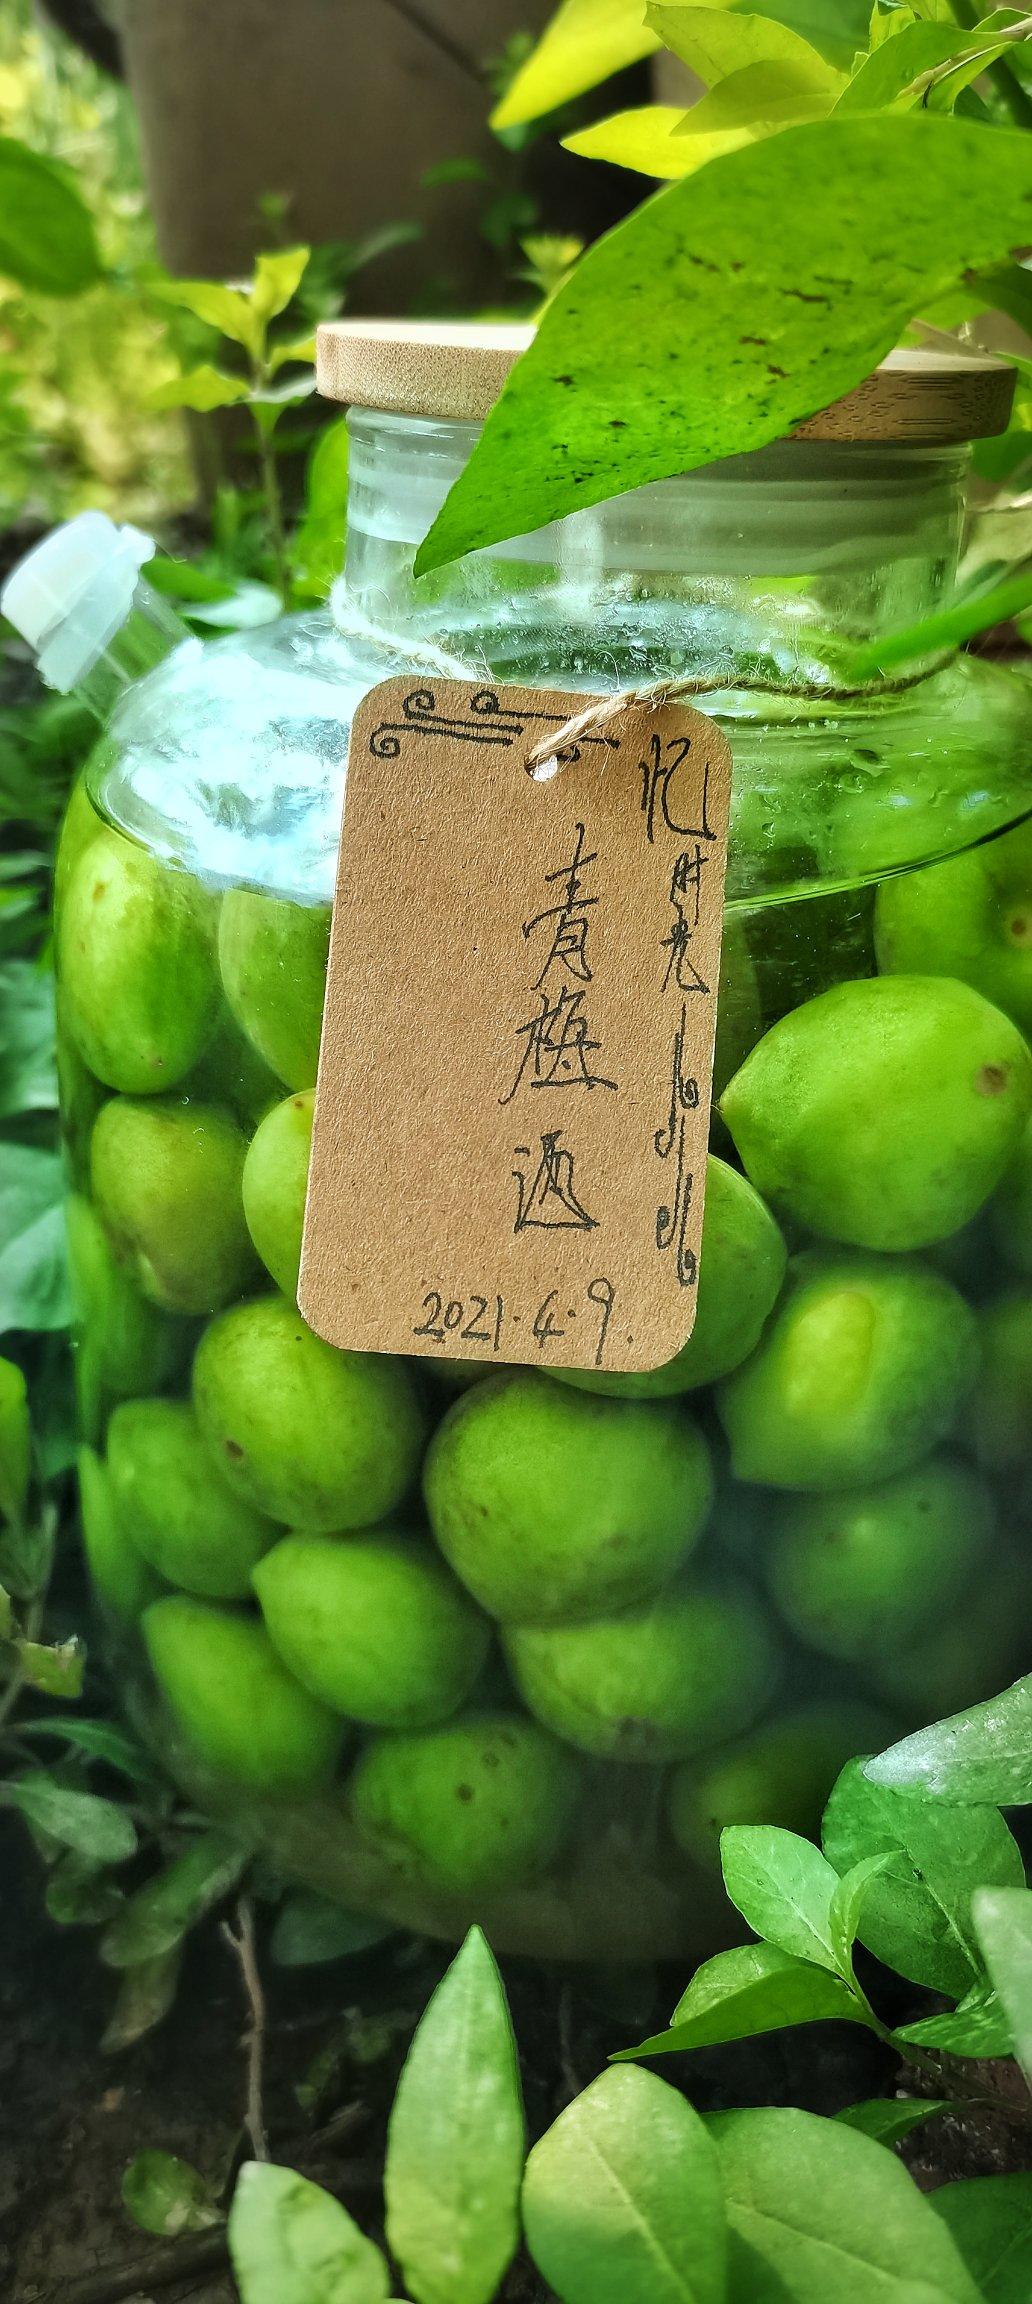 忆时光
青梅酒
2021.4.9.